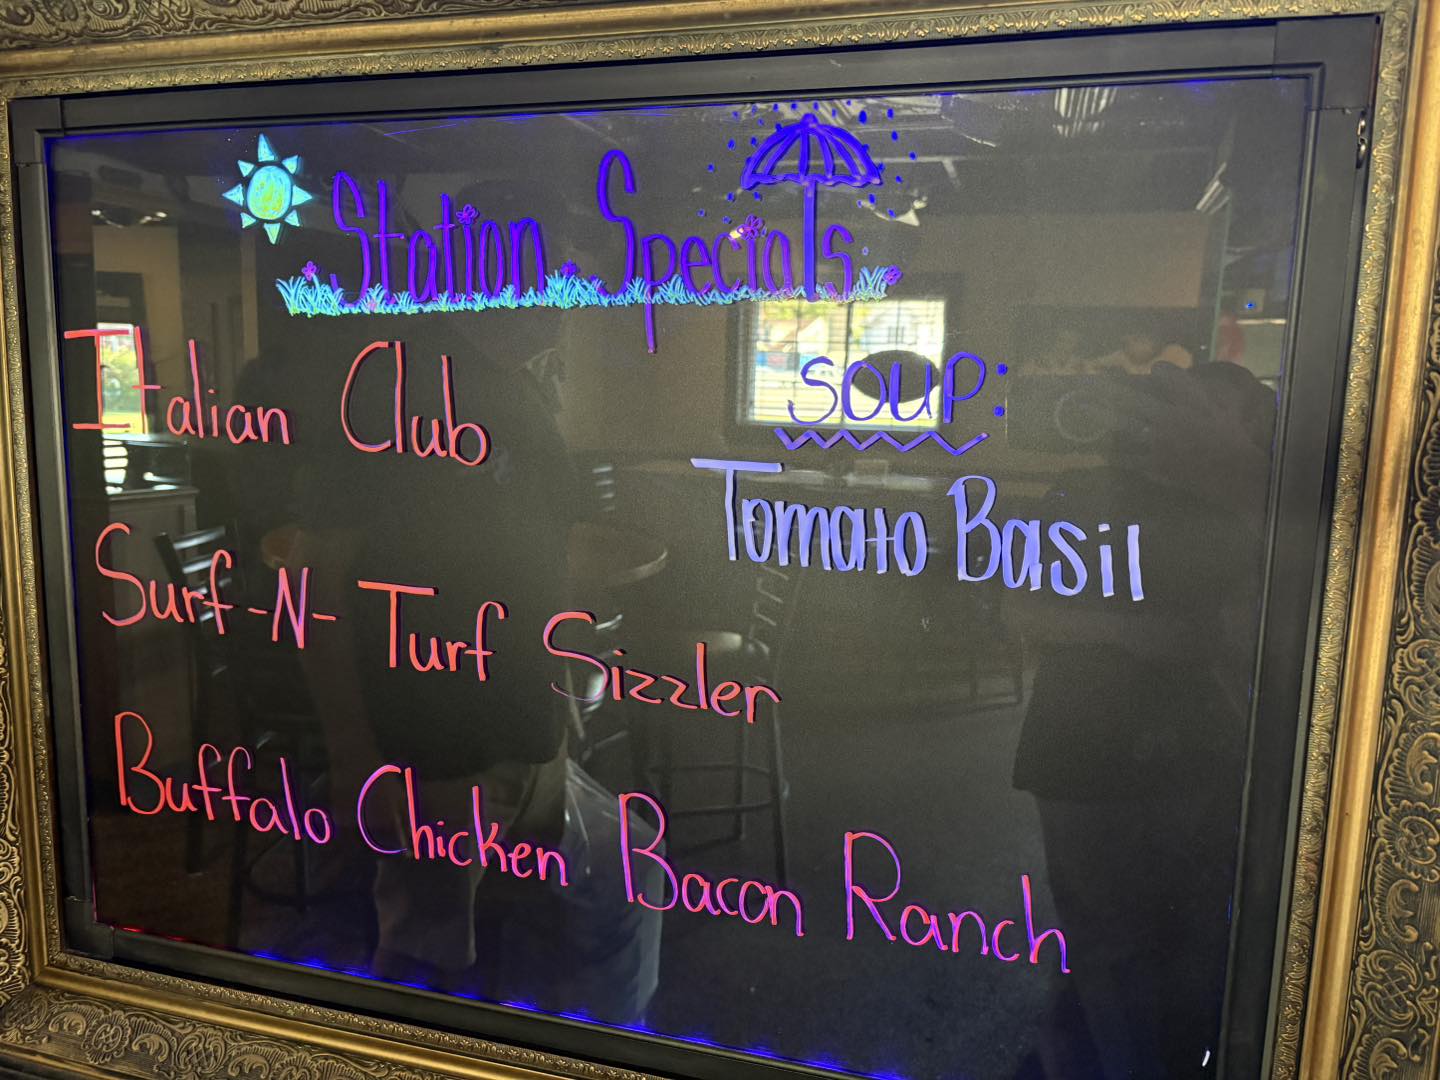 Station Specials
Italian Club
Surf-N-Turf Sizzler
Buffalo Chicken Bacon Ranch
SOUP:
Tomato Basil